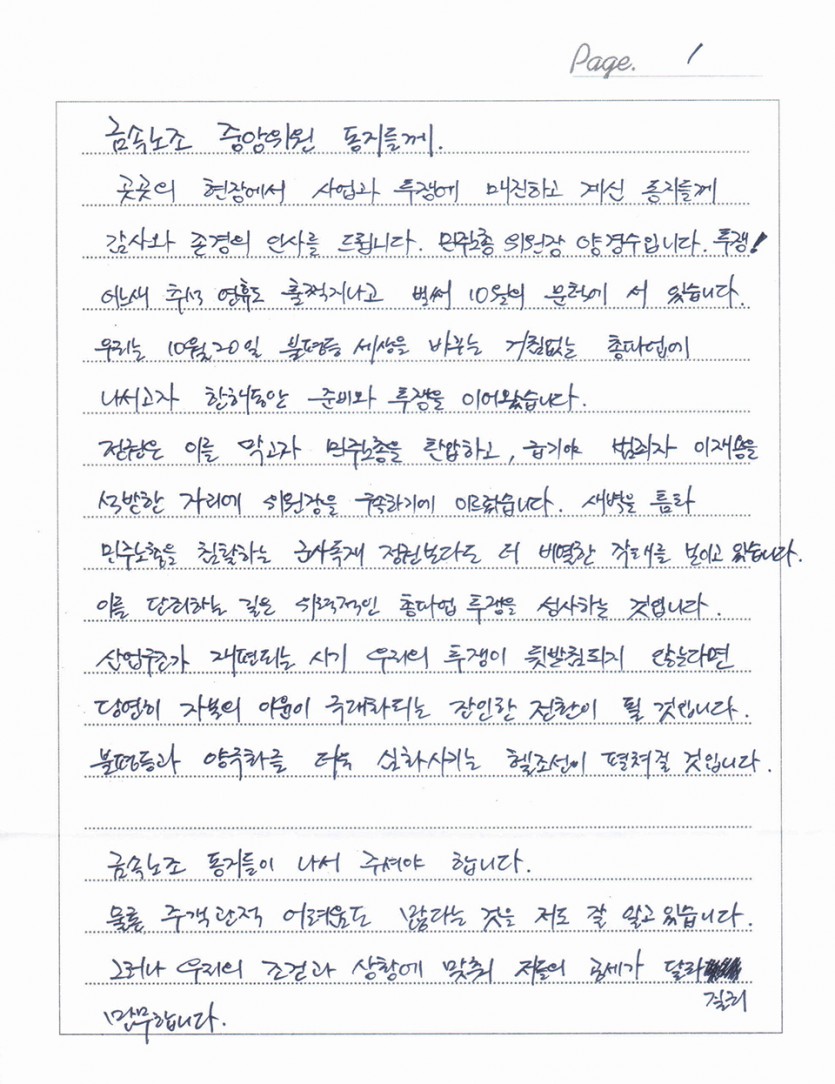 Page. 1
금속노조 중앙위원 동지들께.
곳곳의 현장에서 사업과 투쟁에 매진하고 계신 동지들께
감사와 존경의 인사를 드립니다. 민주노총 위원장 양경수입니다. 투쟁!
어느새 추석 연휴도 훌쩍지나고 벌써 10월의 문턱에 서 있습니다.
우리는 10월20일 불평등 세상을 바꾸는 거침없는 총파업에
나서고자 한해동안 준비와 투쟁을 이어왔습니다.
정권은 이를 막고자 민주노총을 탄압하고, 급기야 범죄자 이재용을
석방한 자리에 위원장을 구속하기에 이르렀습니다. 새벽을 틈타
민주노총을 침탈하는 군사독재 정권보다도 더 비열한 작태를 보이고 있습니다.
이를 단죄하는 길은 위력적인 총파업 투쟁을 성사하는 것입니다.
산업구조가 재편되는 시기 우리의 투쟁이 뒷받침되지 않는다면
당연히 자본의 이윤이 극대화되는 잔인한 전환이 될 것입니다.
불평등과 양극화를 더욱 심화시키는 헬조선이 펼쳐질 것입니다.
금속노조 동지들이 나서 주셔야 합니다.
물론 주객관적 어려움도 많다는 것을 저도 잘 알고 있습니다.
그러나 우리의 조건과 상황에 맞춰 저들의 공세가 달라
질리
만무합니다.